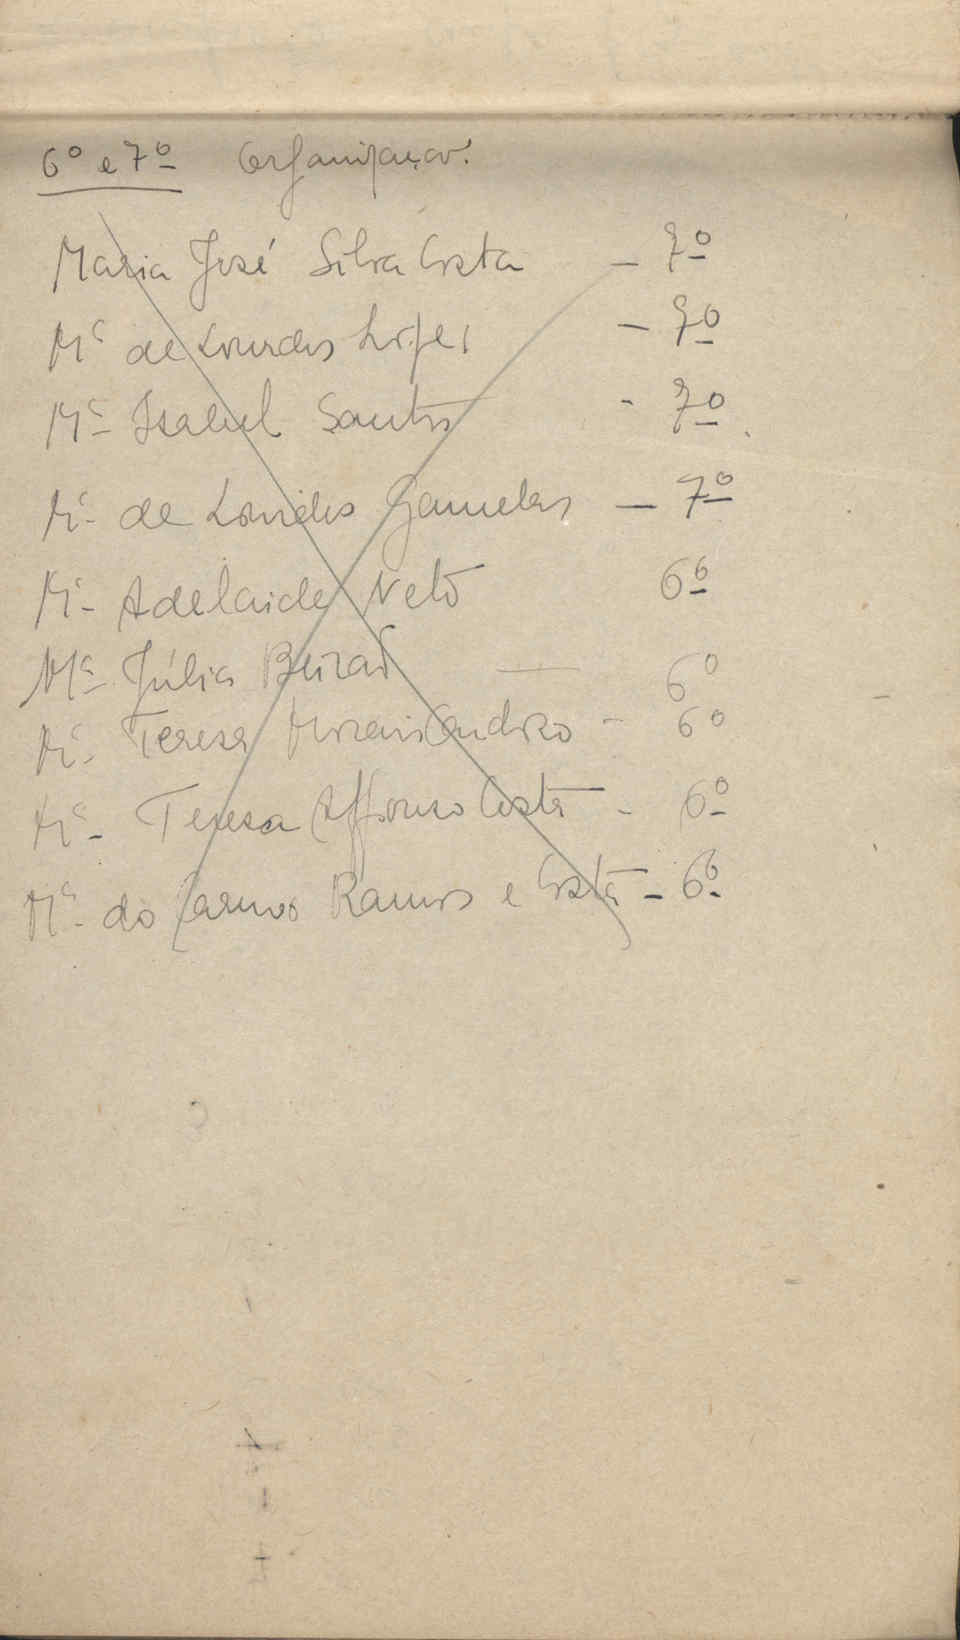 6º e 7º Organização.
Maria José Silva Costa — 7º
Mª de Lourdes Lopes — 7º
Mª Isabel Santos - 7º
Mª de Lourdes Gamelas — 7º
Mª Adelaide Neto 6º
Mª Júlia — 6º
Mª Teresa - 6º
Mª Teresa Affonso Costa - 6º
Mª do Carmo Ramos e Costa - 6º